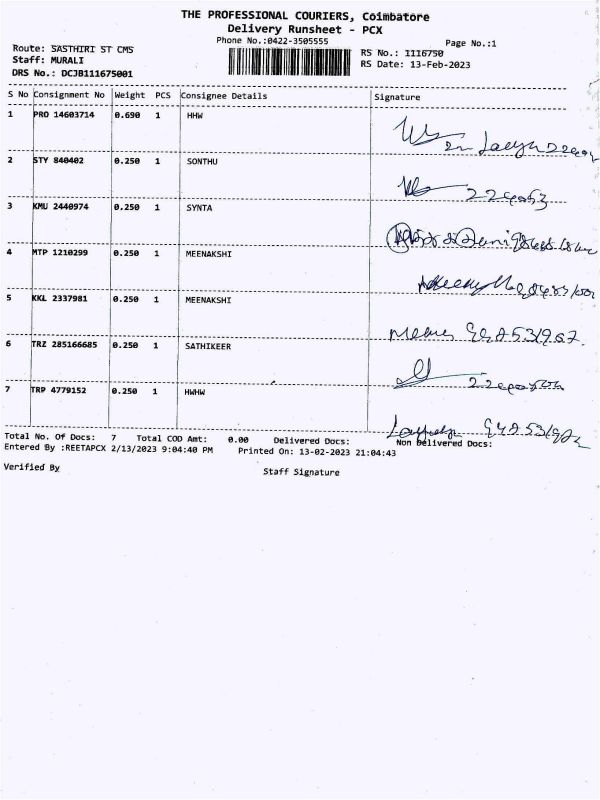 THE PROFESSIONAL COURIERS, Coimbatore
Delivery Runsheet - PCX
Phone No.:0422-3505555
Page No.:1
Route: SASTHIRI ST CMS
RS No.: 1116750
Staff: MURALI
RS Date: 13-Feb-2023
DRS No.: DCJB111675001
S No Consignment No Weight PCS Consignee Details Signature
1 PRO 14603714 0.690 1 HHW
2 STY 840402 0.250 1 SONTHU
3 KMU 2440974 0.250 1 SYNTA
4 MTP 1210299 0.250 1 MEENAKSHI
5 KKL 2337981 0.250 1 MEENAKSHI
6 TRZ 285166685 0.250 1 SATHIKEER
7 TRP 4779152 0.250 1 HWHW
Total No. Of Docs: 7 Total COD Amt: 0.00 Delivered Docs: Non Delivered Docs:
Entered By :REETAPCX 2/13/2023 9:04:40 PM Printed On: 13-02-2023 21:04:43
Verified By Staff Signature